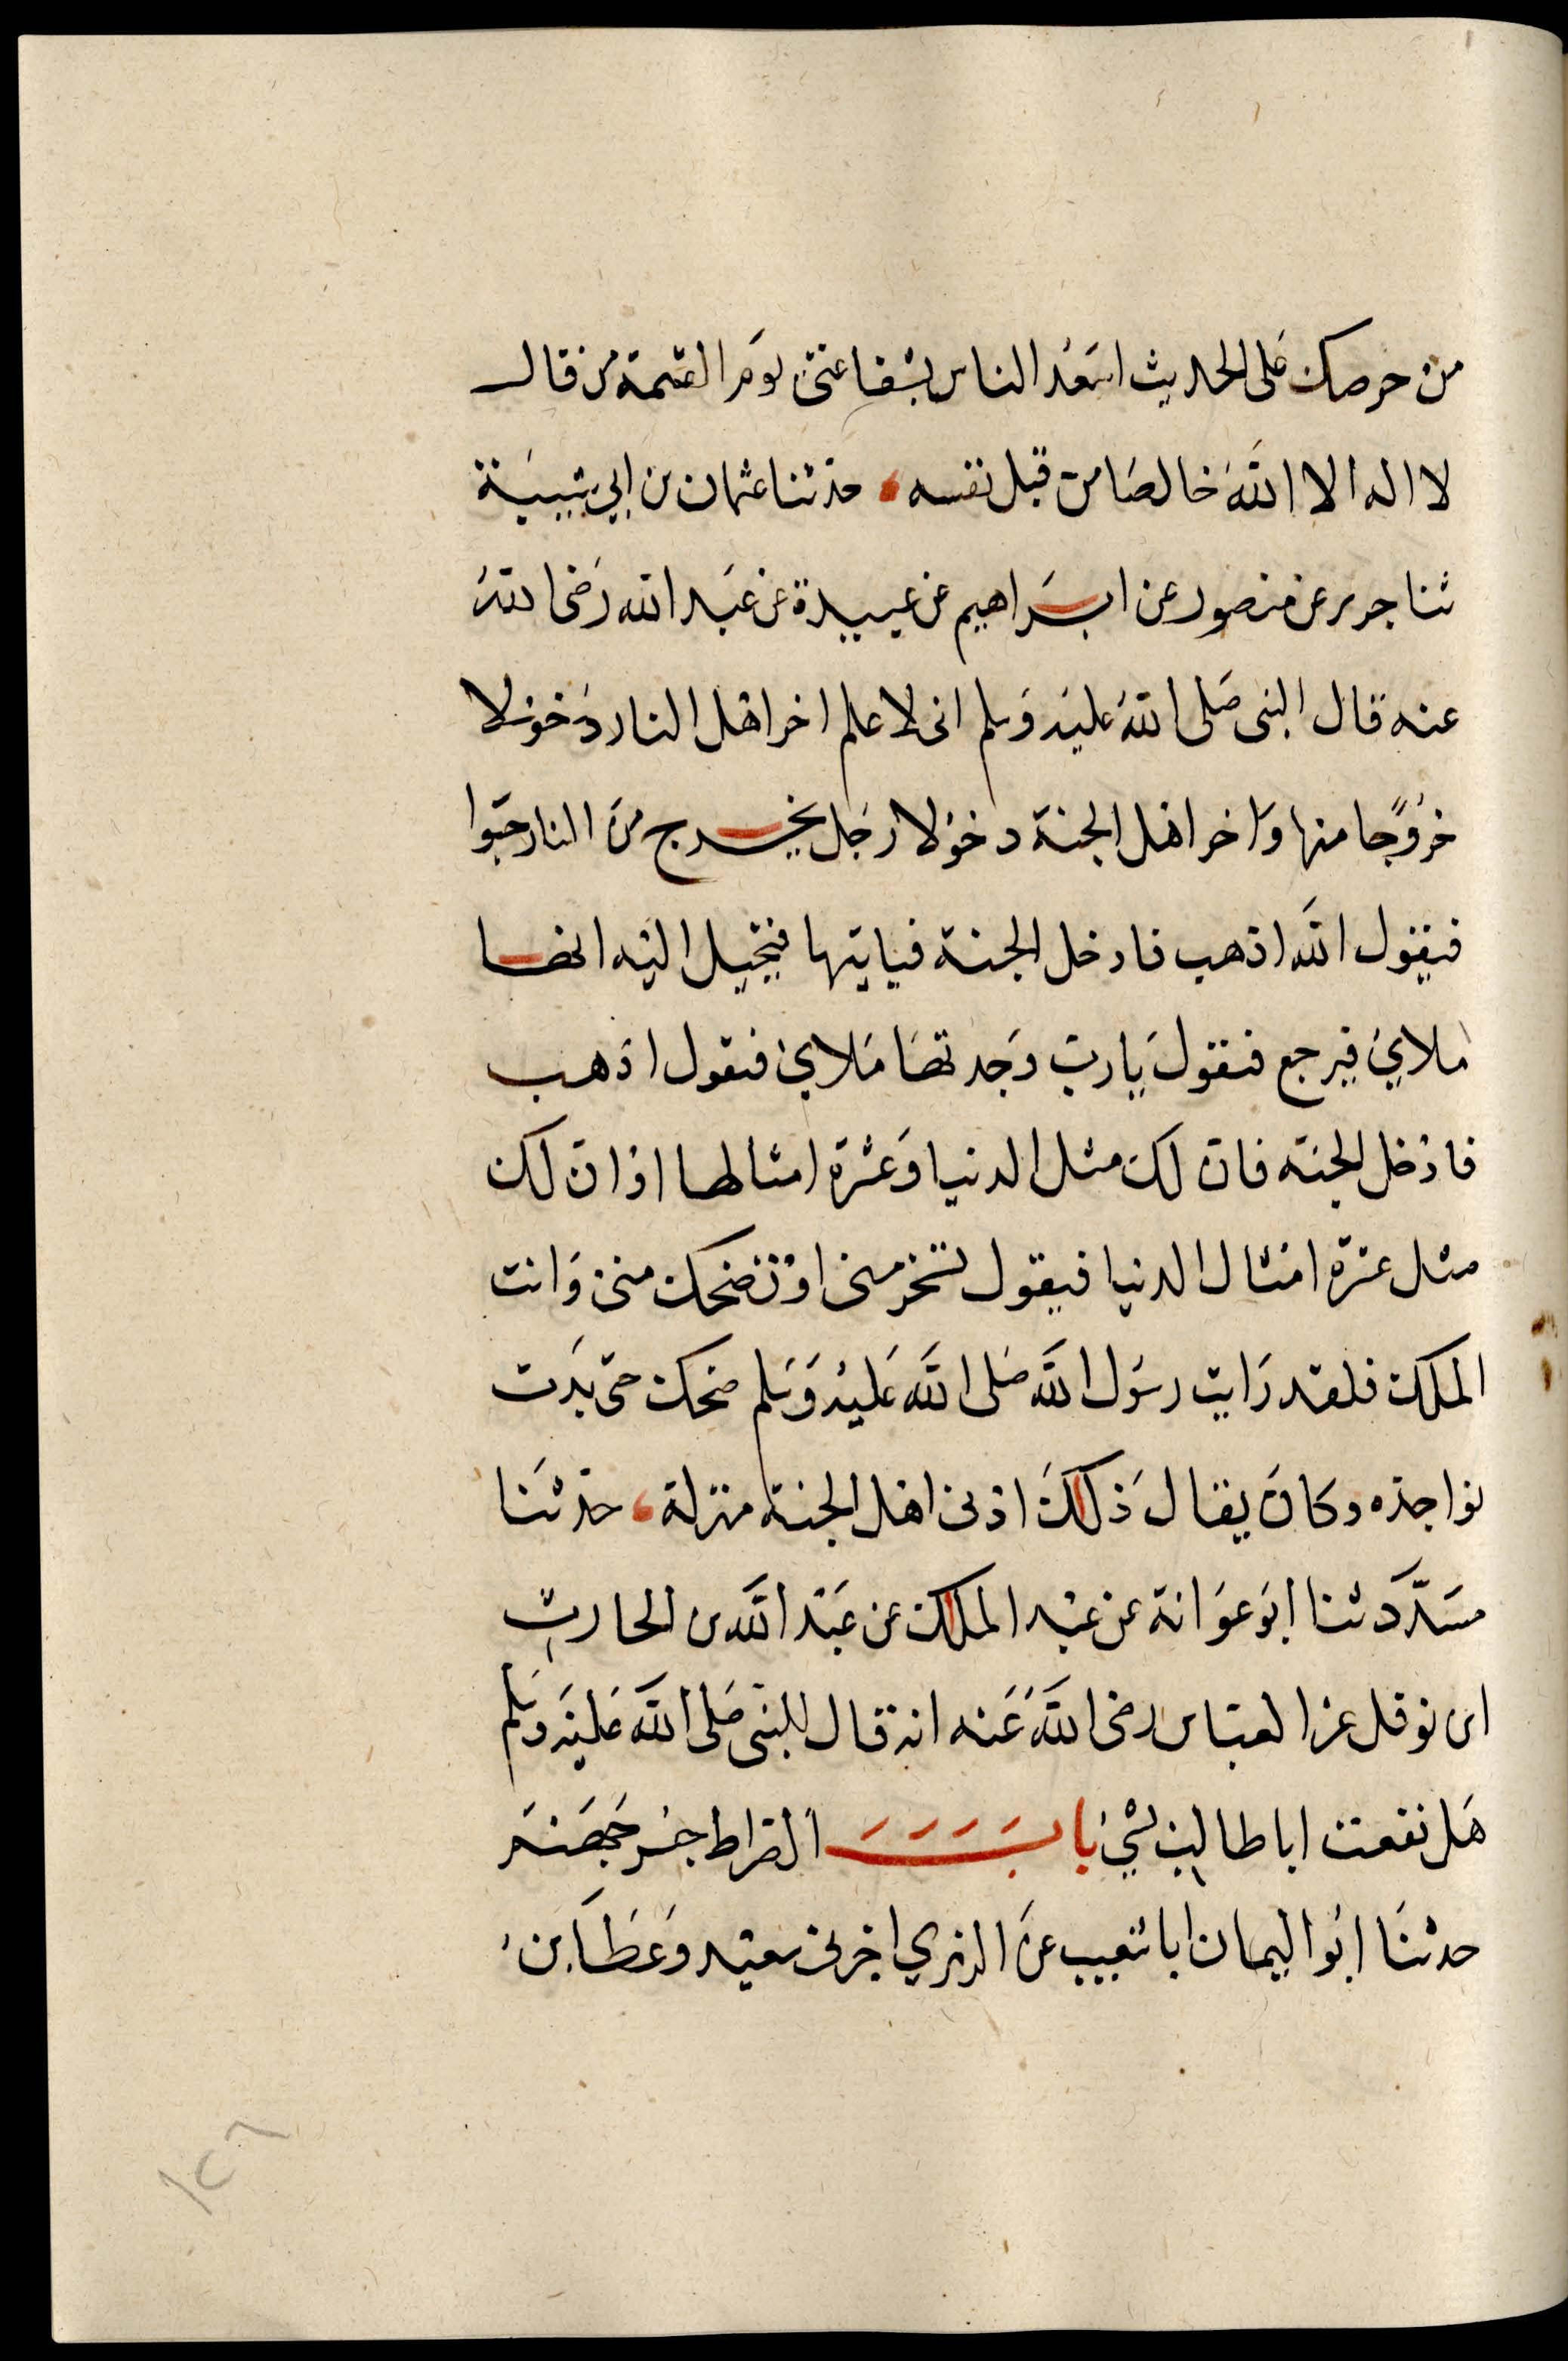 من حرصك على الحديث اسعد الناس بشفاعتى يوم القيمة من قال
لا اله الا الله خالصا من قبل نفسه، حدثنا عثمان بن ابي شيبة
ثنا جرير عن منصور عن ابراهيم عن عبيدة عن عبد الله رضى الله
عنه قال النبى صلى الله عليه وسلم انى لاعلم اخر اهل النار دخولا
خروجا منها واخر اهل الجنة دخولا رجل يخرج من النار حبوا
فيقول الله اذهب فادخل الجنة فياتيها فيخيل اليه انها
ملاي فيرجع فيقول يا رب وجدتها ملاي فيقول اذهب
فادخل الجنة فان لك مثل الدنيا وعشرة امثالها او ان لك
مثل عشرة امثال الدنيا فيقول تسخر منى او تضحك منى وانت
الملك فلقد رايت رسول الله صلى الله عليه وسلم ضحك حتى بدت
نواجذه وكان يقال ذلك ادنى اهل الجنة منزلة، حدثنا
مسدد ثنا ابو عوانة عن عبد الملك عن عبد الله بن الحارث
ابن نوفل عن العباس رضى الله عنه انه قال للنبى صلى الله عليه وسلم
هل نفعت اباطالب بشيء باب الصراط جسر جهنم
حدثنا ابو اليمان ابا شعيب عن الزهري اخبرنى سعيد وعطا بن
١٥٦